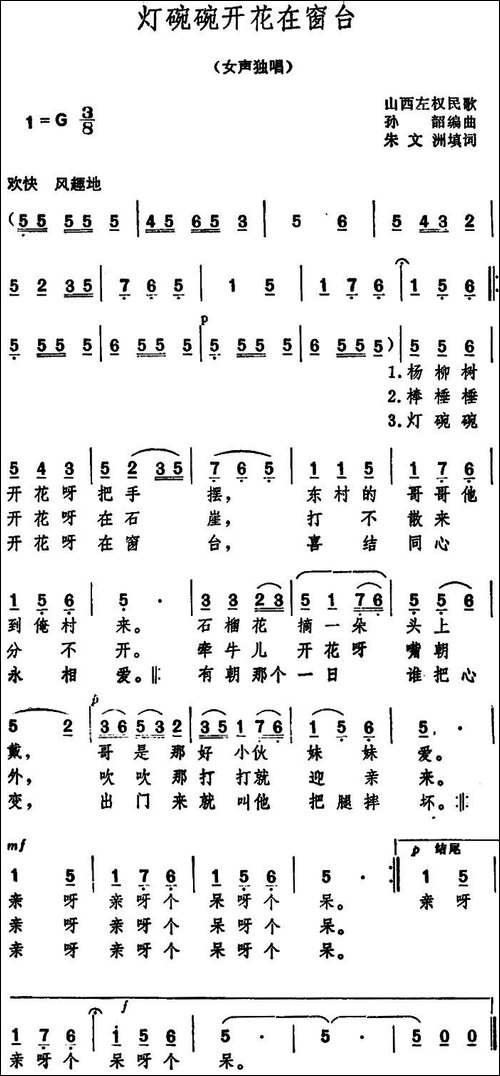 灯碗碗开花在窗台
（女声独唱）
1=G 3/8
山西左权民歌
孙 韶编曲
朱文洲填词
欢快 风趣地
(55 55 5 | 45 65 3 | 5 6 | 5 43 2 |
5 2 35 | 7 6 5 | 1 5 | 1 7 6 | 1 5 6 |:
p
5 55 55 | 6 55 55 | 5 55 55 | 6 55 5) | 5 5 6
1.杨柳树
2.棒棰棰
3.灯碗碗
5 4 3 | 5 2 35 | 7 6 5 | 1 1 5 | 1 7 6
开花呀 把手 摆， 东村的 哥哥他
开花呀 在石 崖， 打 不 散来
开花呀 在窗 台， 喜 结 同心
1 5 6 | 5 · | 3 3 23 | 5 1 76 | 5 5 6
到俺村 来。 石榴花 摘一朵 头上
分 不 开。 牵牛儿 开花呀 嘴朝
永 相 爱。:‖: 有朝那个一日 谁把心
p
5 2 | 36 53 5 | 35 1 76 | 1 5 6 | 5 ·
戴， 哥是那好小伙 妹 妹 爱。
外， 吹吹那打打就 迎 亲 来。
变， 出门来就叫他 把腿摔 坏。:‖:
mf
p 结尾
1 5 | 1 7 6 | 1 5 6 | 5 · :| 1 5
亲 呀 亲呀个 呆呀个 呆。 亲 呀
亲 呀 亲呀个 呆呀个 呆。
亲 呀 亲呀个 呆呀个 呆。
f
1 7 6 | i 5 6 | 5 · | 5 · | 5 0 0 ‖
亲呀个 呆呀个 呆。